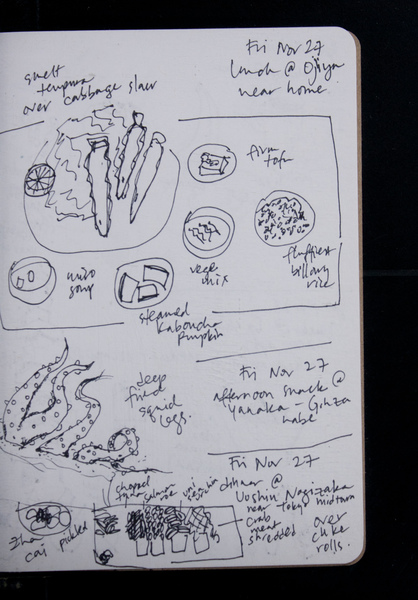 Fri Nov 27
Lunch @ Ojiya
near home.
smelt
tempura
over cabbage slaw
firm
tofu
miso
soup
vege
mix
fluffiest
billowy
rice
steamed
kabocha
pumpkin
deep
fried
squid
legs.
Fri Nov 27
afternoon snack @
Yanaka - Ginza
Fri Nov 27
dinner @
Uoshin Nogizaka
near Tokyo midtown
chopped
salmon
roe
uni
crab
meat
shredded
over
cuke
rolls.
Zha
cai
pickled